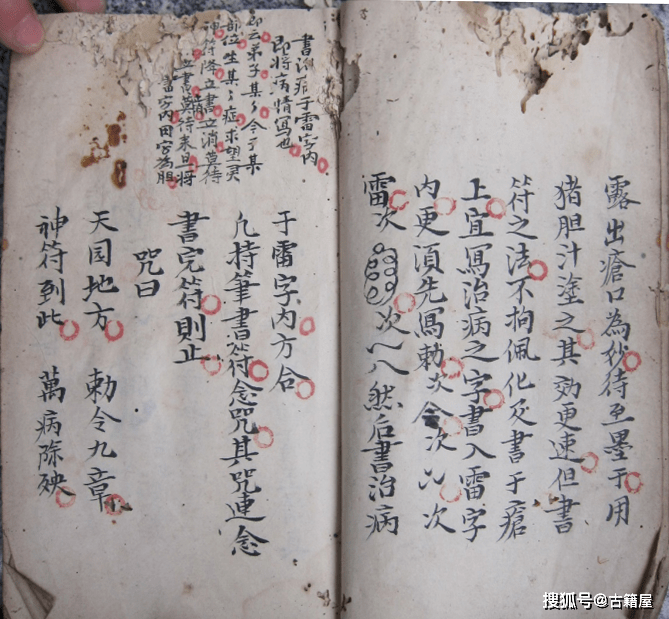 露出瘡口為妙待至墨于用
猪胆汁塗之其效更速但書
符之法不拘佩化灰書于瘡
上宜寫治病之字書入雷字
内更須先寫勅次令次
雷次 次 八 然后書治病
書治瘡于雷字内
即将病情寫也
即云弟子某々今于某
部位生某々症求望灵
神符降立書立消莫待
立書莫待来旦将
雷字内田字為胆
于雷字内方合
凢持筆書符念咒其咒連念
書完符則止
咒曰
天圓地方 勅令九章
神符到此 萬病除殃
搜狐号@古籍屋